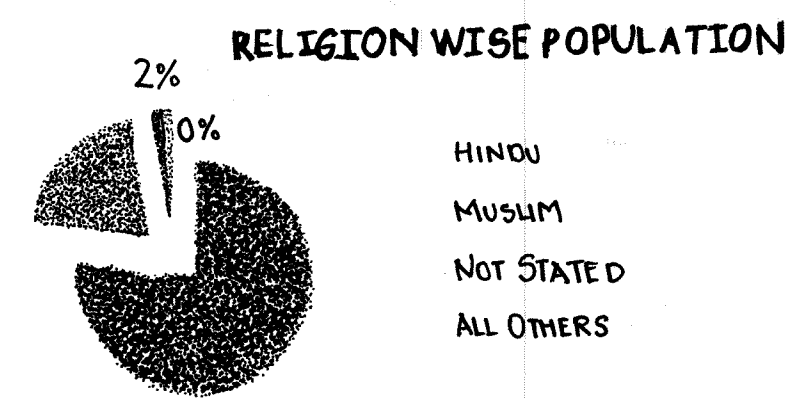 RELIGION WISE POPULATION
2%
0%
HINDU
MUSLIM
NOT STATED
ALL OTHERS